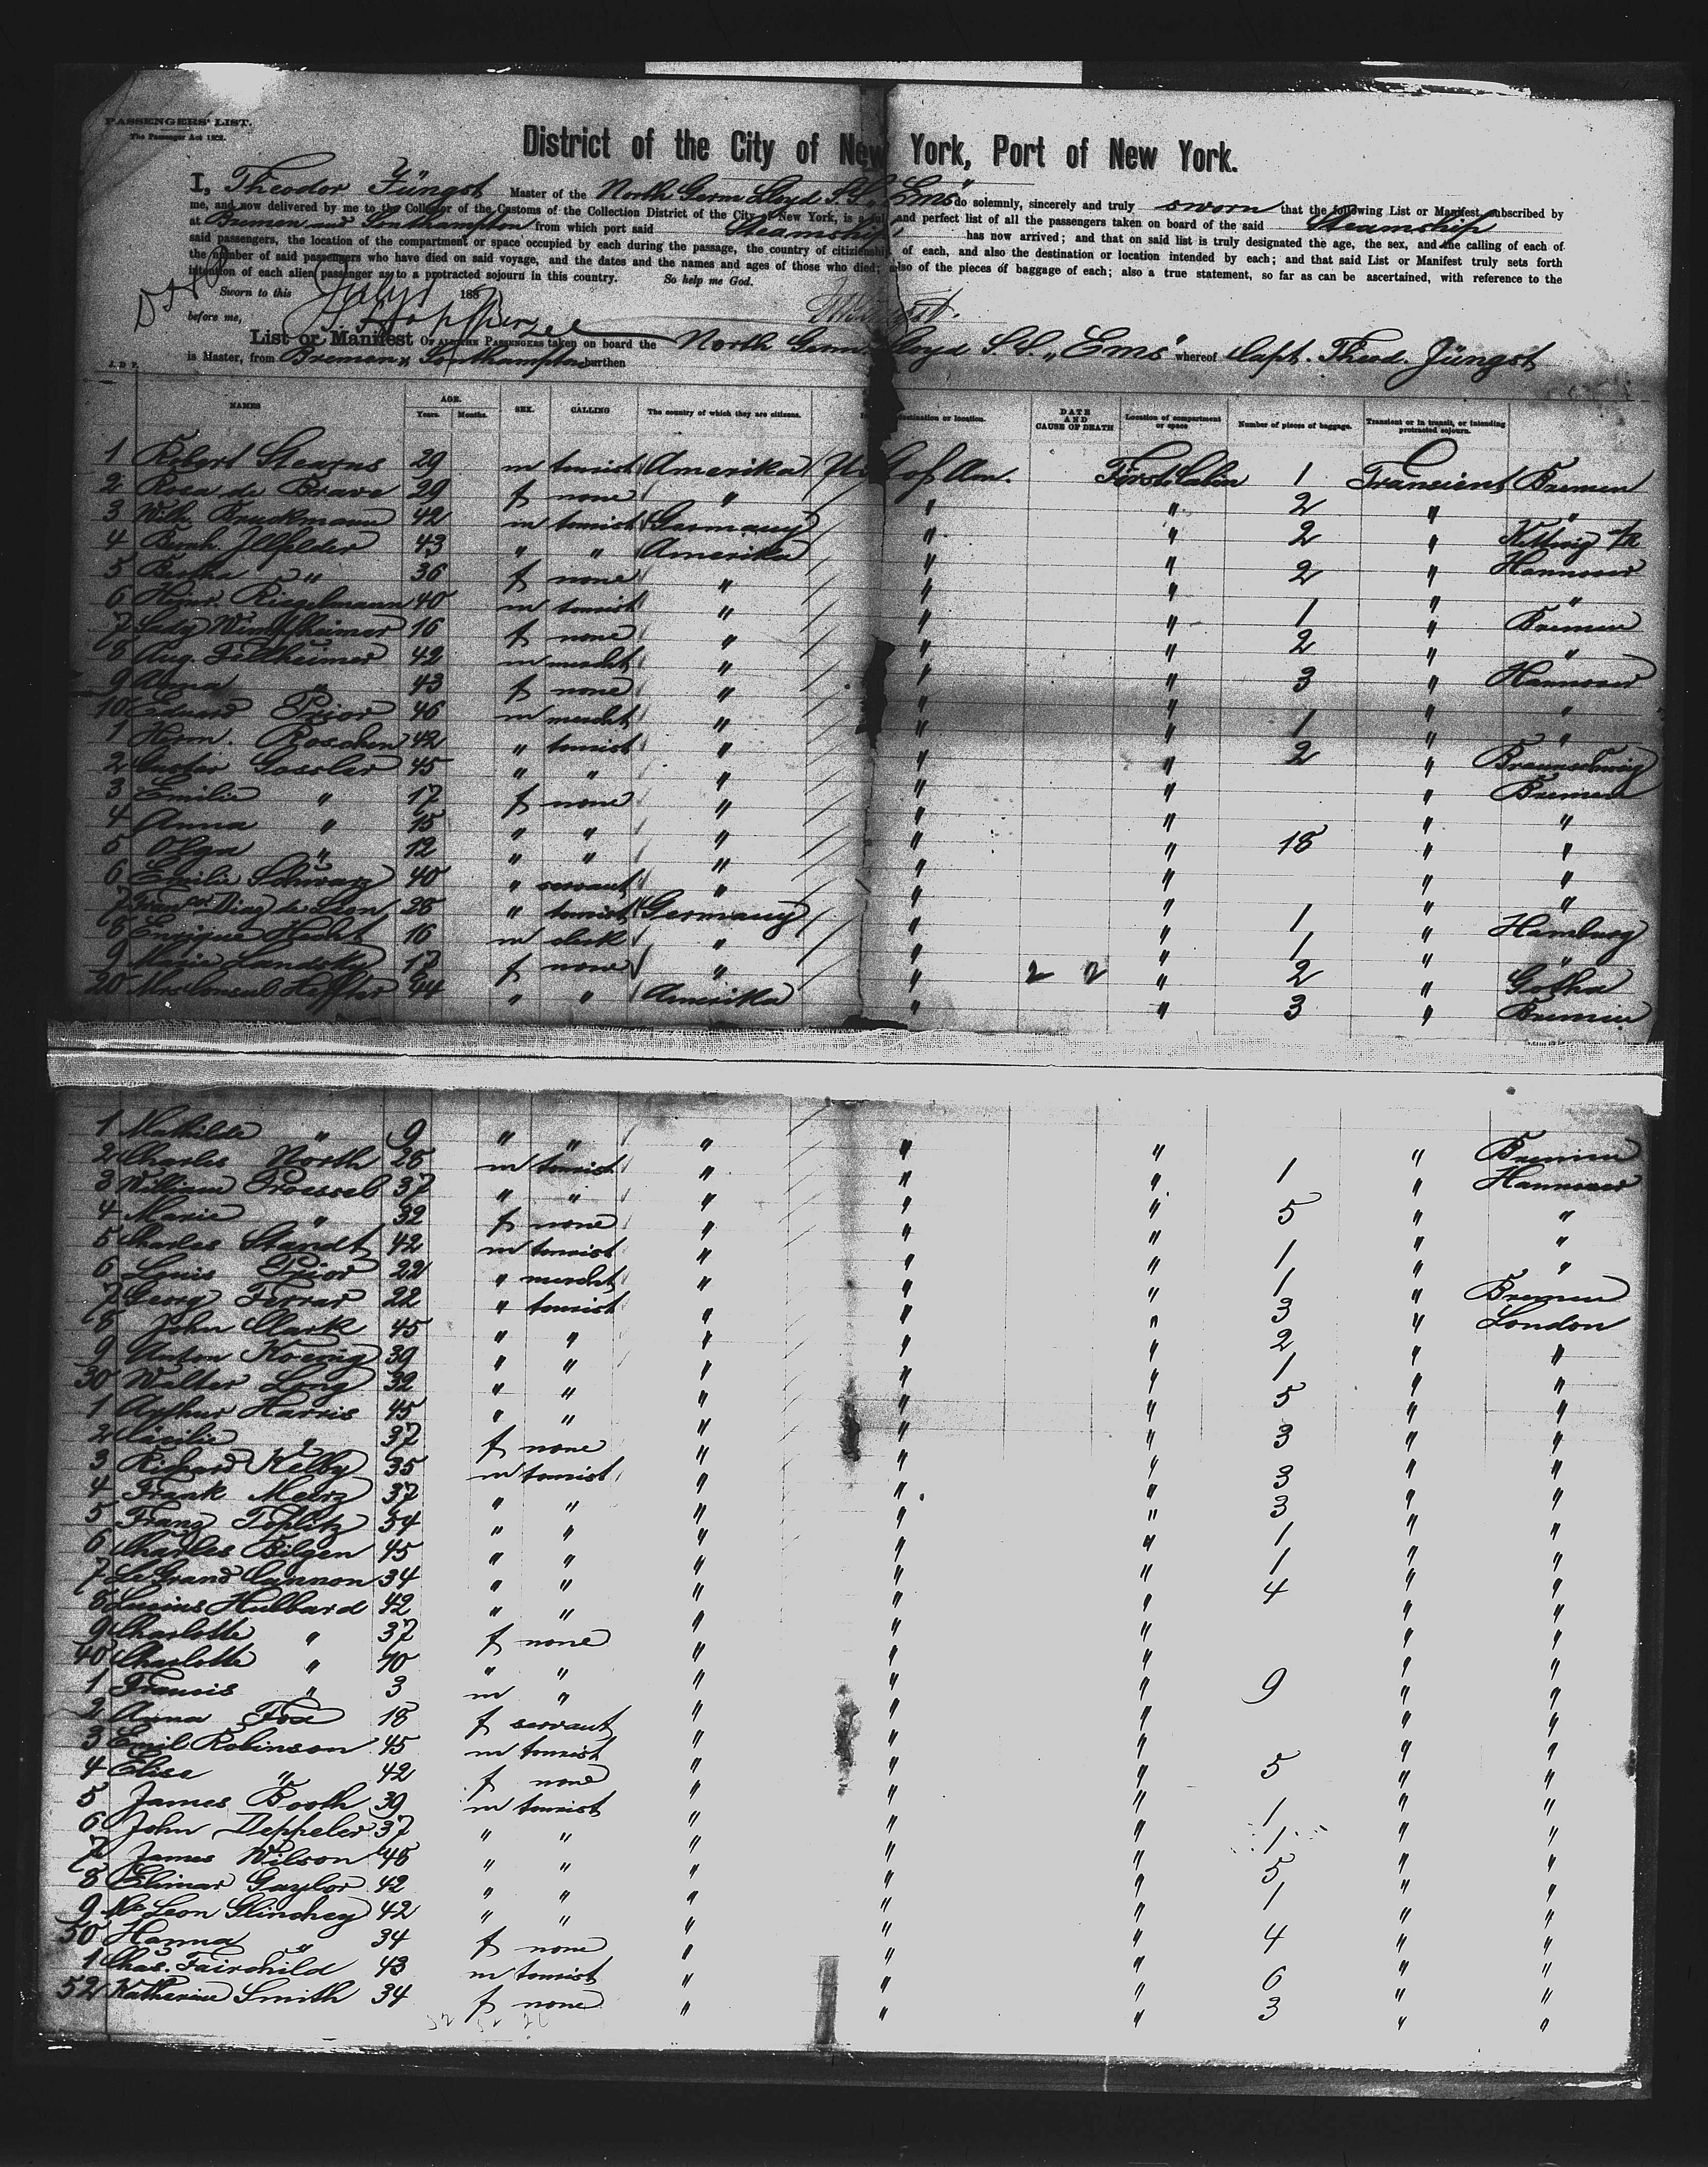 PASSENGERS' LIST.
The Passenger Act 1882.
District of the City of New York, Port of New York.
I, Theodor Jüngst Master of the North Germ. Lloyd S.S. „Ems" do solemnly, sincerely and truly sworn that the following List or Manifest, subscribed by
me, and now delivered by me to the Collector of the Customs of the Collection District of the City of New York, is a full and perfect list of all the passengers taken on board of the said Steamship
at Bremen and Southampton from which port said Steamship has now arrived; and that on said list is truly designated the age, the sex, and the calling of each of
said passengers, the location of the compartment or space occupied by each during the passage, the country of citizenship of each, and also the destination or location intended by each; and that said List or Manifest truly sets forth
the number of said passengers who have died on said voyage, and the dates and the names and ages of those who died; also of the pieces of baggage of each; also a true statement, so far as can be ascertained, with reference to the
intention of each alien passenger as to a protracted sojourn in this country. So help me God.
Sworn to this July 1 188
before me,
List or Manifest OF ALL THE PASSENGERS taken on board the North Germ. Lloyd S.S. „Ems" whereof Capt. Theod. Jüngst
is Master, from Bremen & Southampton burthen
NAMES AGE. Years. Months. SEX. CALLING The country of which they are citizens. destination or location. DATE AND CAUSE OF DEATH Location of compartment or space Number of pieces of baggage. Transient or in transit, or intending protracted sojourn.
1 Robert Stearns 29 m tourist Amerika U. S. of Am. First Cabin 1 Transient Bremen
2 Rosa de Brave 29 f none " " " 2 " "
3 Wilh. Bruckmann 42 m tourist Germany " " 2 " Kettwig a/R
4 Bernh. Illfelder 43 " " Amerika " " 2 " Hannover
5 Bertha " 36 f none " " " " "
6 Heinr. Riegelmann 40 m tourist " " " 1 " Bremen
7 Ludg Windtheimer 16 f none " " " 2 " "
8 Aug. Fellheimer 42 m mercht " " " 3 " Hannover
9 Anna " 43 f none " " " " "
10 Eduard Prior 46 m mercht " " " 1 " "
1 Herm. Roschen 42 " tourist " " " 2 " Braunschweig
2 Gustav Gossler 45 " " " " " " Bremen
3 Emilie " 17 f none " " " " "
4 Anna " 15 " " " " " 18 " "
5 Olga " 12 " " " " " " "
6 Emilie Schwarz 40 " servant " " " " "
7 Diaz de Leon 28 " tourist Germany " " 1 " Hamburg
8 Enrique Hecht 16 m clerk " " " 1 " "
9 Maria Landsky 17 f none " " 2 2 " 2 " Gotha
20 Mrs Consul Heffter 44 " " Amerika " " 3 " Bremen
1 Mathilde " 9 " " " " " " Bremen
2 Charles North 28 m tourist " " " 1 " Hannover
3 William Troessel 37 " " " " " "
4 Marie " 32 f none " " " 5 " "
5 Charles Standt 42 m tourist " " " 1 " "
6 Louis Prior 22 " mercht " " " 1 " Bremen
7 Georg Farrar 22 " tourist " " " 3 " London
8 John Clark 45 " " " " " 2 " "
9 Anton Koenig 39 " " " " " 1 " "
30 Walter Long 32 " " " " " 5 " "
1 Arthur Harris 45 " " " " " "
2 Cäcilie " 37 f none " " " 3 " "
3 Richard Kelby 35 m tourist " " " 3 " "
4 Frank Merz 37 " " " " " 3 " "
5 Franz Toplitz 54 " " " " " 1 " "
6 Charles Bilgen 45 " " " " " 1 " "
7 LeGrand Cannon 34 " " " " " 4 " "
8 Lucius Hubbard 42 " " " " " "
9 Charlotte " 37 f none " " " " "
40 Charlotte " 10 " " " " " " "
1 Francis " 3 m " " " " 9 " "
2 Anna Fox 18 f servant " " " " "
3 Emil Robinson 45 m tourist " " " " "
4 Elise " 42 f none " " " 5 " "
5 James Booth 39 m tourist " " " 1 " "
6 John Deppeler 37 " " " " " 1 " "
7 James Wilson 48 " " " " " 5 " "
8 Elimar Gaylor 42 " " " " " 1 " "
9 Mc Leon Glinchey 42 " " " " " "
50 Hanna " 34 f none " " " 4 " "
1 Chas. Fairchild 43 m tourist " " " 6 " "
52 Katherine Smith 34 f none " " " 3 " "